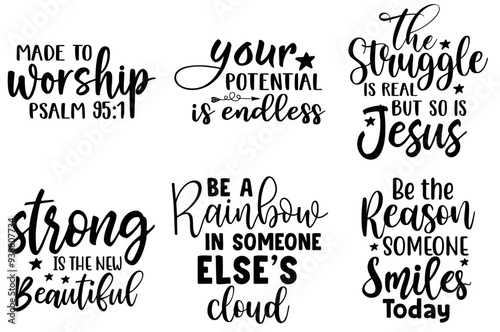 MADE TO
worship
PSALM 95:1
your
POTENTIAL
is endless
the
Struggle
IS REAL
BUT SO IS
Jesus
strong
IS THE NEW
Beautiful
BE A
Rainbow
IN SOMEONE
ELSE'S
cloud
Be the
Reason
SOMEONE
Smiles
Today